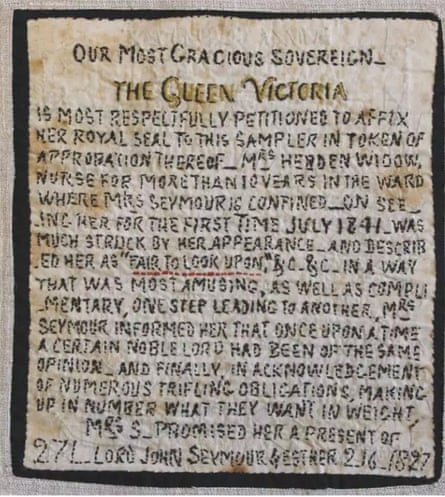 OUR MOST GRACIOUS SOVEREIGN_
THE QUEEN VICTORIA
IS MOST RESPECTFULLY PETITIONED TO AFFIX
HER ROYAL SEAL TO THIS SAMPLER IN TOKEN OF
APPROBATION THEREOF_ MRS HEBDEN WIDOW,
NURSE FOR MORE THAN 10 YEARS IN THE WARD
WHERE MRS SEYMOUR IS CONFINED_ ON SEE_
_ING HER FOR THE FIRST TIME JULY 1841_ WAS
MUCH STRUCK BY HER APPEARANCE_ AND DESCRIB
_ED HER AS "FAIR TO LOOK UPON," &C_ &C_ IN A WAY
THAT WAS MOST AMUSING, AS WELL AS COMPLI
_MENTARY, ONE STEP LEADING TO ANOTHER, MRS
SEYMOUR INFORMED HER THAT ONCE UPON A TIME
A CERTAIN NOBLE LORD HAD BEEN OF THE SAME
OPINION_ AND FINALLY, IN ACKNOWLEDGEMENT
OF NUMEROUS TRIFLING OBLIGATIONS, MAKING
UP IN NUMBER WHAT THEY WANT IN WEIGHT,
MRS S_ PROMISED HER A PRESENT OF
27L_ LORD JOHN SEYMOUR & ESTHER 2_16_1827